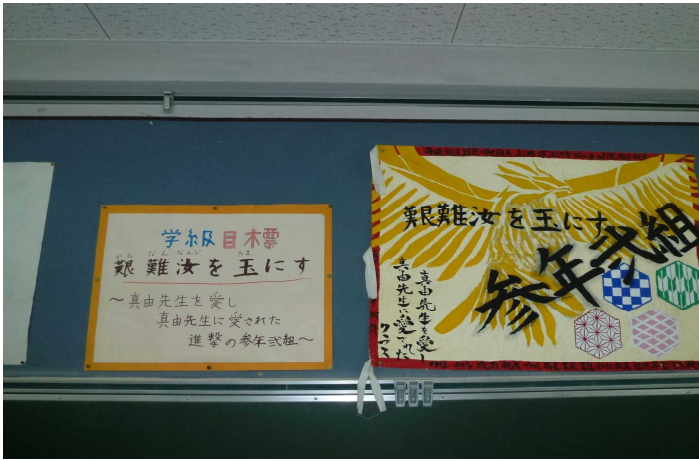 学級目標
艱難汝を玉にす
かん なん なんじ たま
~真由先生を愛し
真由先生に愛された
進撃の参年弐組~
艱難汝を玉にす
参年弐組
真由先生を愛し
真由先生に愛された
クラス